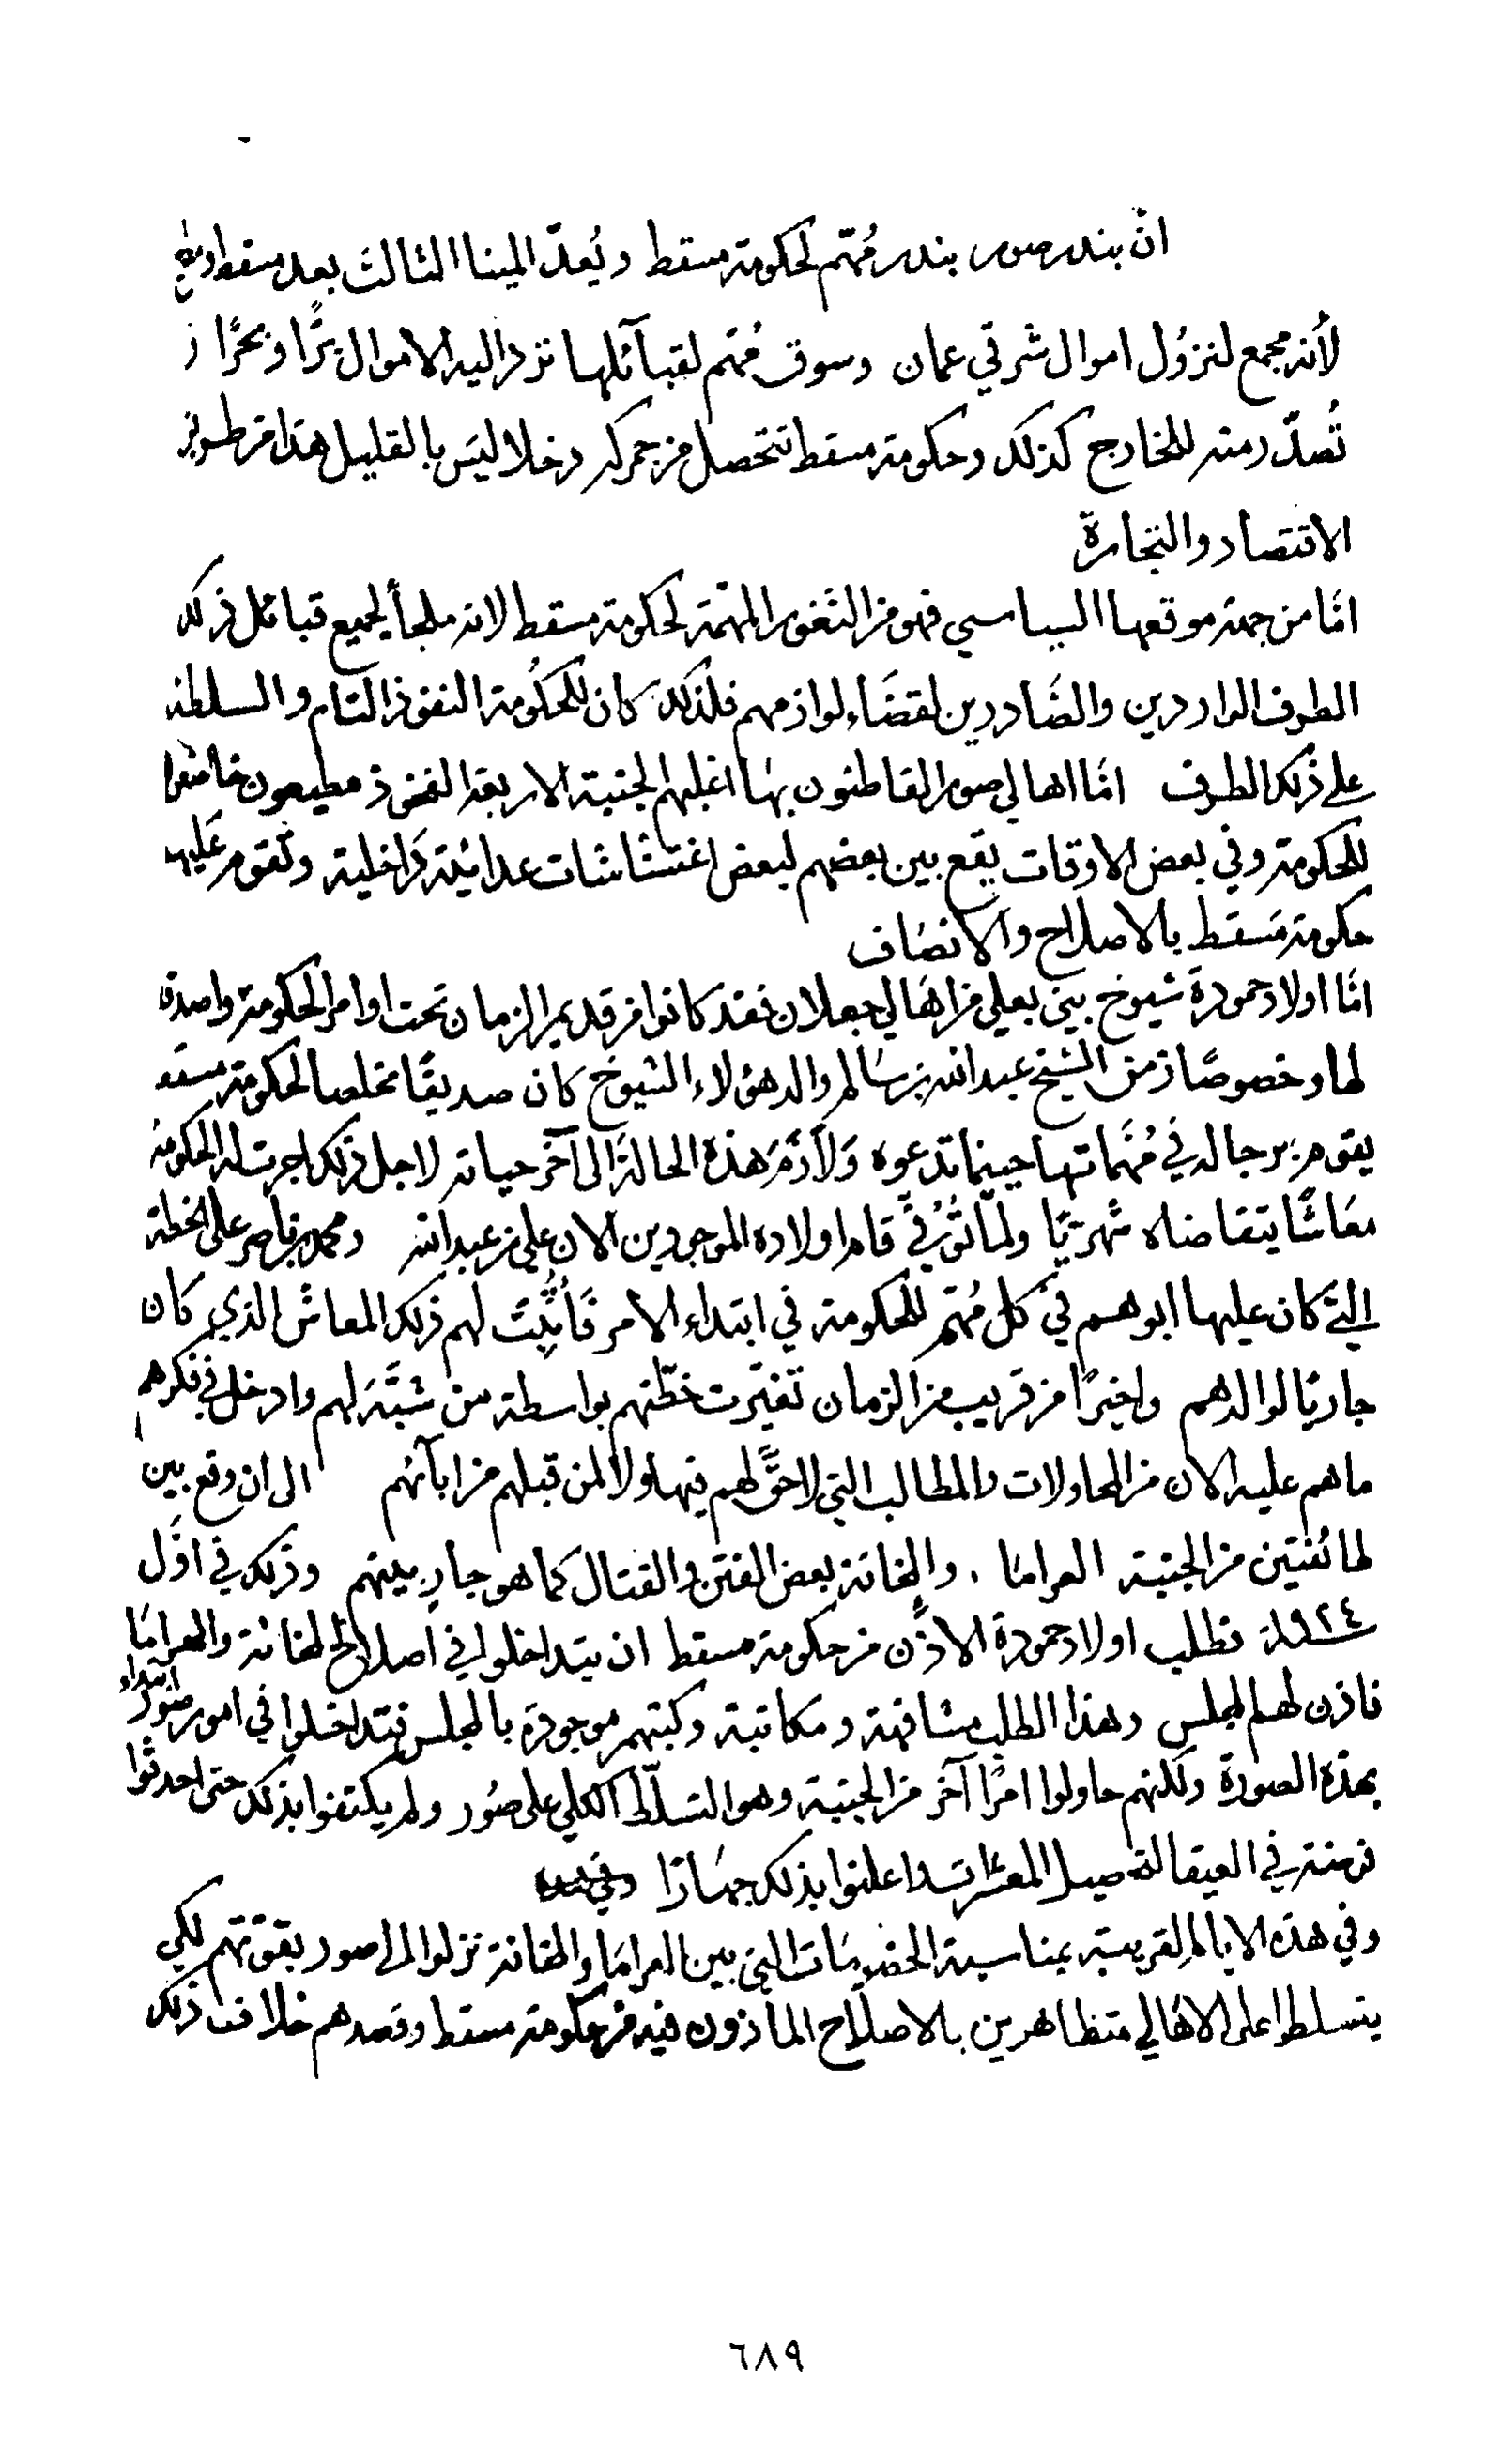 انّ بندر صور بندر مُهّم لحكومة مسقط ويُعدّ المينا الثالث بعد مسقط ومطرح
لأنه مجمع لنزوُل اموال شرقي عمان وسوق مُهّم لقبآئلها تَرد اليه الاموال برًّا وبحرًا و
تُصدّر منه للخارج كذلك وحكومة مسقط تتحصل من جمركه دخلا ليَس بالقليل هذا من طريق
الاقتصاد والتجارة
امَّا من جهة موقعها السياسي فهو من الثغور المهّمة لحكومة مسقط لانه ملجأ لجميع قبائل ذلك
الطرف الواردين والصَّادرين لقضَاء لوازمهم فلذلك كان للحكُومة النفوذ التام والسلطة
على ذلك الطرف امَّا اهالي صور القاطنون بهَا اغلبهم الجنبة الاربعة الفخوذ مطيعون خاضعوا
للحكومة وفي بعض الاوقات يقع بين بعضهم لبعض اغتشاشات عدائيّة دَاخلية وتقوم عَليها
حكومة مَسقط بالاصلاح والانصَاف
امَّا اولاد حمودة شيوخ بني بعلي من اهَالي جعلان فقد كانوا من قديم الزمان تحت اوامر الحكومة واصدقا
لها وخصوصًا زمن الشيخ عبدالله بن سَالم والد هؤلاء الشيوخ كان صديقًا مخلصا لحكومة مسقط
يقوم برجاله في مُهّماتها حينما تدعوه وَلاَزَمَ هَذه الحالة الى آخر حياته لاجل ذلك اجرت له الحكومة
معَاشًا يتقاضاه شهريًّا ولما تُوُفّيَ قام اولاده الموجودين الان علي بن عبدالله ومحمد بن ناصر على الخطة
التي كان عليها ابوهم في كل مُهّم للحكومة في ابتداء الامر فَأُثبِتَ لهم ذلك المعاش الذي كان
جاريًا لوالدهم واخيرًا من قريب من الزمان تغيّرت خطّتهم بواسطة من شبَّهَ لهم وادخل في فكرهم
ما هم عليه الان من المحاولات والمطالب التي لا حقَّ لهم فيها ولا لمن قبلهم من ابآئهم الى ان وقع بين
طائفتين من الجنبة العرامَا . والمخانة بعض الفتن والقتال كما هو جارٍ بينهم وذلك في اوَّل
سنة ١٩٢٤ فطلب اولاد حمودة الاذن من حكومة مسقط ان يتداخلوا في اصلاح المخانة والعرامَا
فاذن لهم المجلس وهذا الطلب مشافهة ومكاتبة وكتبهم موجودة بالمجلس فتداخلوا في امور صُور ابتداء
بهذه الصورة ولكنهم حاولوا امرًا آخر من الجنبة وهو التسلّط الكلي على صُور ولم يكتفوا بذلك حتى احدثوا
فرضة في العيقا لتحصيل المعشرات واعلنوا بذلك جهَارًا
وفي هذه الايام القريبة بمناسبة الخصومَات التي بين العرامَا والمخانة نزلوا الى صور بقوّتهم لكي
يتسلطوا على الاهَالي متظاهرين بالاصلاح الماذون فيه من حكومة مسقط وقصدهم خلاف ذلك
٦٨٩